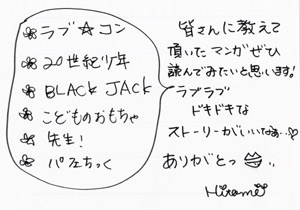 ラブ☆コン
20世紀少年
BLACK JACK
こどものおもちゃ
先生!
パフェちっく
皆さんに教えて
頂いたマンガぜひ
読んでみたいと思います!
ラブラブ
ドキドキな
ストーリーがいいなぁ…♡
ありがとっ
Hitomi